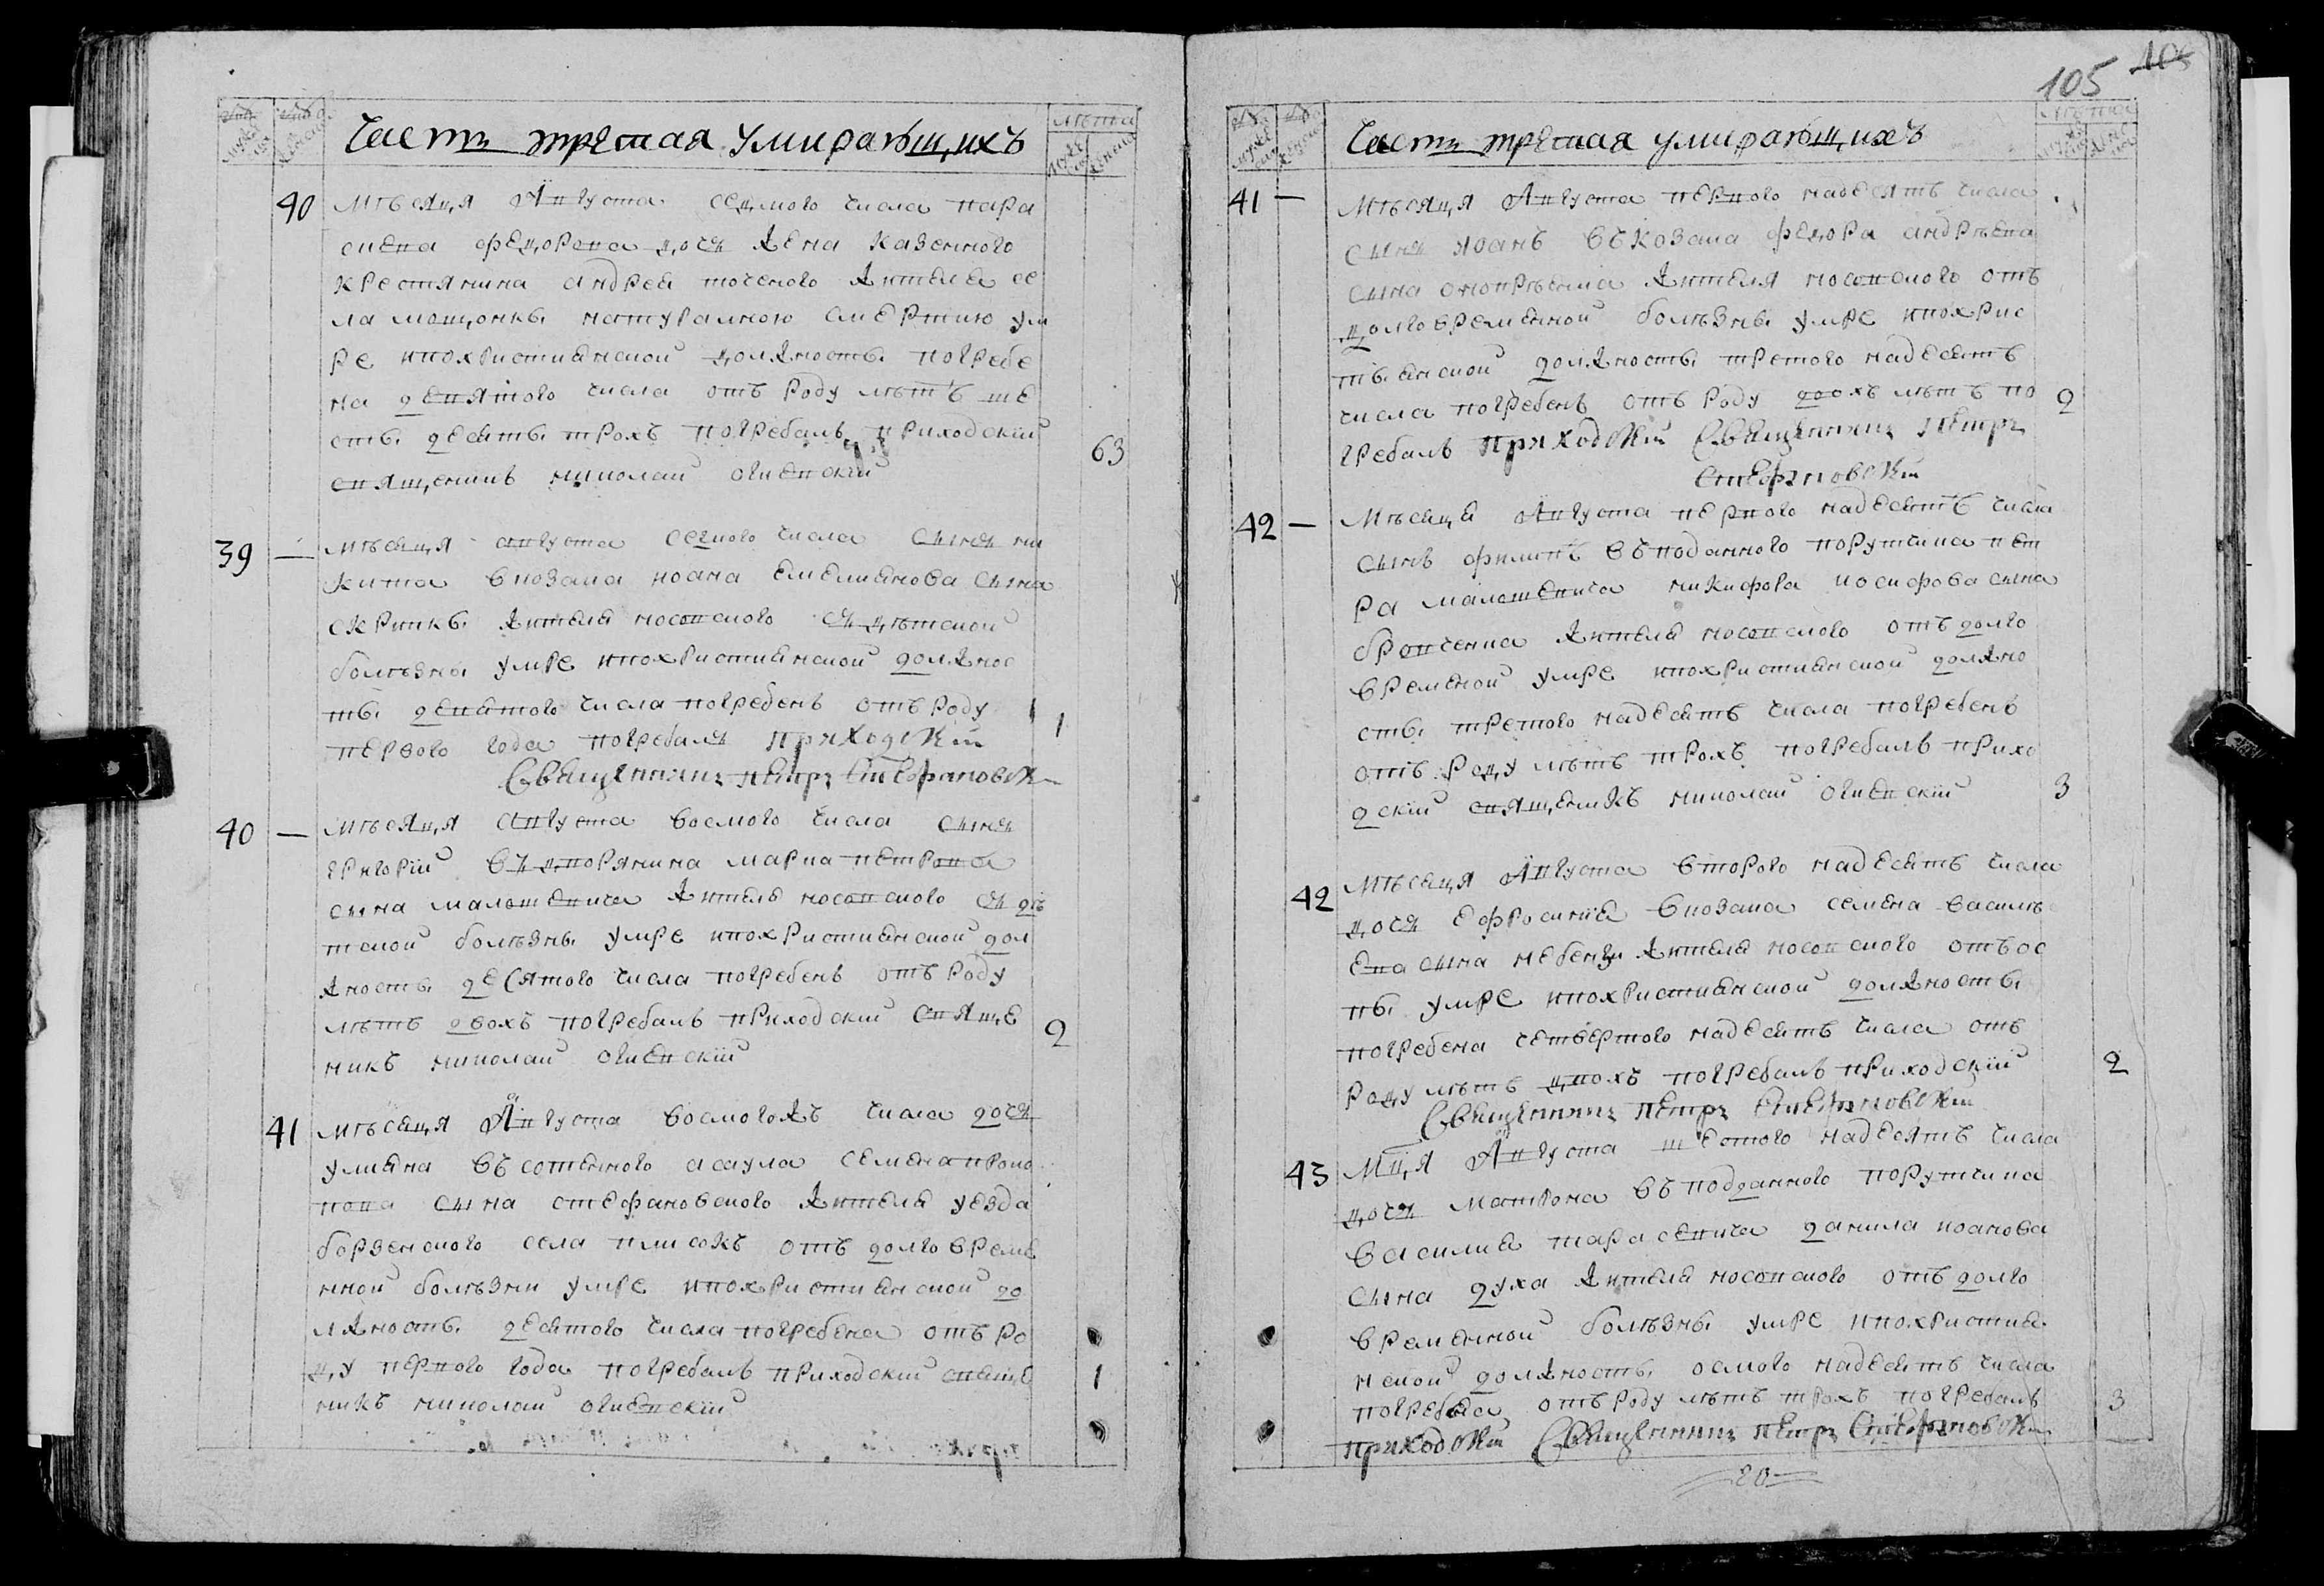 Часть третая умирающихъ
40 Мѣсяца Августа седмого числа пара
скева федорова дочь жена казенного
крестянина андрея точеного жителя се
ла мощонки натуралною смертию ум
ре ипохристианской должности погребе
на девятого числа отъ роду лѣтъ ше
сть десять трохъ погребалъ приходский
священикъ николай огиевский 63
39 — Мѣсяця августа седмого числа сынъ ни
кита вкозака иоана емелианова сына
скрипки жителя носовского
болѣзны умре ипохристианской должнос
ты девятого числа погребенъ отъ роду
первого года погребалъ приходскій 1
Священникъ петръ Стефановскій
40 — Мѣсяця Августа восмого числа сынъ
григорий въ дворянина марка петрова
сына малашевича жителя носовского съ дѣ
тской болѣзны умре ипохристианской дол
жность десятого числа погребенъ отъ роду
лѣтъ двохъ погребалъ приходский свяще
никъ николай огиевский 2
41 Мѣсяця Августа восмогожъ числа дочь
улияна въ сотенного асаула семена проко
пова сына стефановского жителя уезда
борзенского села плисокъ отъ долговреме
нной болѣзни умре ипохристианской до
лжность десятого числа погребена отъ ро
ду первого года погребалъ приходский свяще 1
никъ николай огиевский
105
Часть третая умирающихъ
41 — Мѣсяця Августа первого надесять числа
сынъ иоанъ въ козака федора андрѣева
сына жителя носовского отъ
долговременной болѣзны умре ипохрис
тыянской должность третого надесять
числа погребенъ отъ роду двохъ лѣтъ по 2
гребалъ приходскій Священникъ петръ
Стефановскій
42 — Мѣсяця Августа первого надесять числа
сынъ филипъ въ поданного порутчика пет
ра малашевича никифора иосифова сына
жителя носовского отъ долго
временой умре ипохристианской должно
сть третого надесять числа погребенъ
отъ роду лѣтъ трохъ погребалъ прихо
дский священикъ николай огиевский 3
42 Мѣсяця Августа второго надесять числа
дочь ефросиния вкозака семена василѣ
ева сына жителя носовского отъ ос
пы умре ипохристианской должность
погребена четвертого надесять числа отъ
роду лѣтъ двохъ погребалъ приходский 2
Священникъ петръ Стефановскій
43 Мця Августа шестого надесять числа
дочь матрона въ подданного порутчика
василия тарасевича данила иоанова
сына духа жителя носовского отъ долго
временной болѣзны умре ипохристиа
нской должность осмого надесять числа
погребена отъ роду лѣтъ трохъ погребалъ 3
приходскій Священникъ петръ Стефановскій